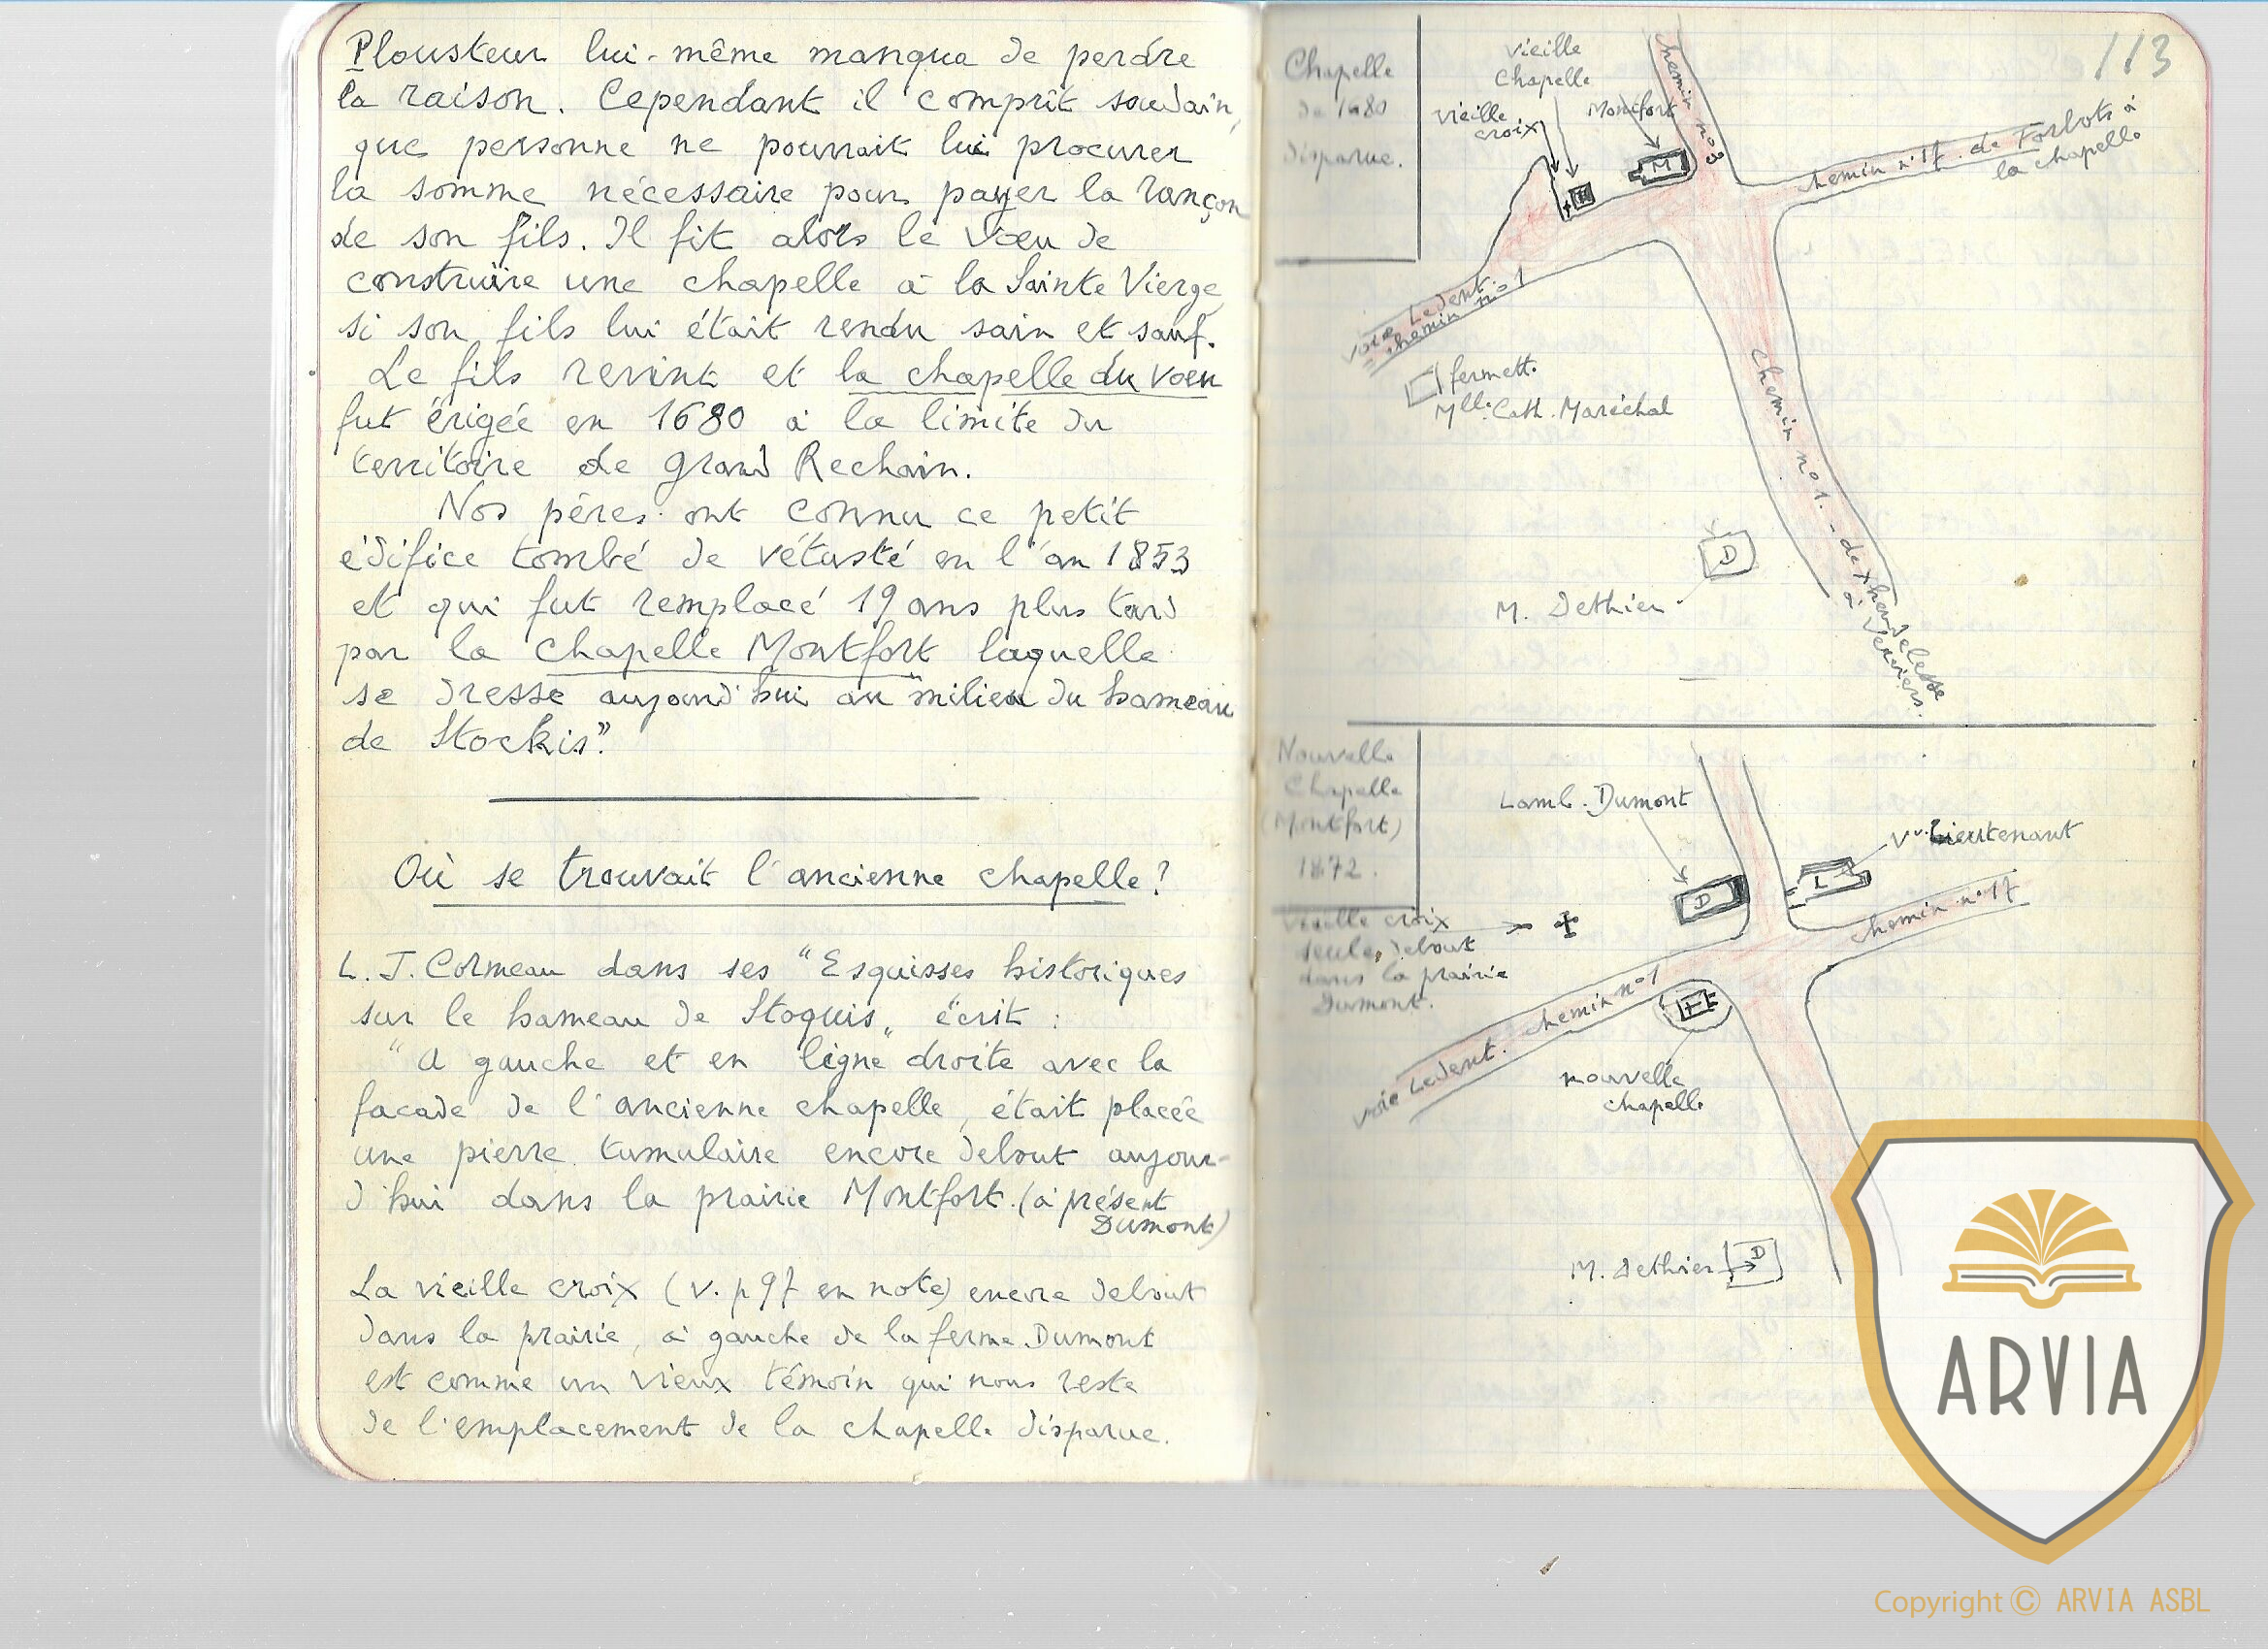 Plousteur lui-même manqua de perdre
la raison. Cependant il comprit soudain,
que personne ne pourrait lui procurer
la somme nécessaire pour payer la rançon
de son fils. Il fit alors le vœu de
construire une chapelle à la Sainte Vierge,
si son fils lui était rendu sain et sauf.
Le fils revint et la chapelle du vœu
fut érigée en 1680 à la limite du
territoire de Grand Rechain.
Nos pères ont connu ce petit
édifice tombé de vétusté en l'an 1853
et qui fut remplacé 19 ans plus tard
par la chapelle Montfort laquelle
se dresse aujourd'hui au milieu du hameau
de Stockis".
Où se trouvait l'ancienne chapelle?
L. J. Cormeau dans ses "Esquisses historiques
sur le hameau de Stoquis" écrit :
"A gauche et en ligne droite avec la
facade de l'ancienne chapelle, était placée
une pierre tumulaire encore debout aujour-
d'hui dans la prairie Montfort. (à présent
Dumont)
La vieille croix (v. p 97 en note) encore debout
dans la prairie, à gauche de la ferme Dumont
est comme un vieux témoin qui nous reste
de l'emplacement de la chapelle disparue.
113
Chapelle
de 1680
disparue.
vieille
chapelle
vieille
croix
Montfort
M
chemin no 3
chemin n° 17 de Forbots à
la chapelle
voie Ledent.
= chemin no 1
fermett.
Mlle Cath. Maréchal
chemin no 1. - de Xhendelesse
à Verviers.
D
M. Dethier
Nouvelle
Chapelle
(Montfort)
1872.
Lamb. Dumont
Vve Lieutenant
D
L
chemin n° 17
vieille croix
seule, debout
dans la prairie
Dumont.
voie Ledent. chemin no 1
nouvelle
chapelle
M. Dethier
D
ARVIA
Copyright © ARVIA ASBL